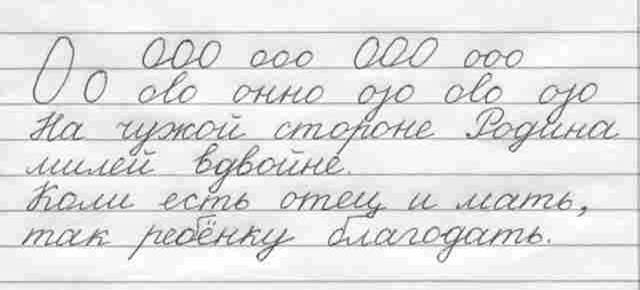 Оо ООО ооо ООО ооо
ово онно озо ово озо
На чужой стороне Родина
милей вдвойне.
Коли есть отец и мать,
так ребёнку благодать.